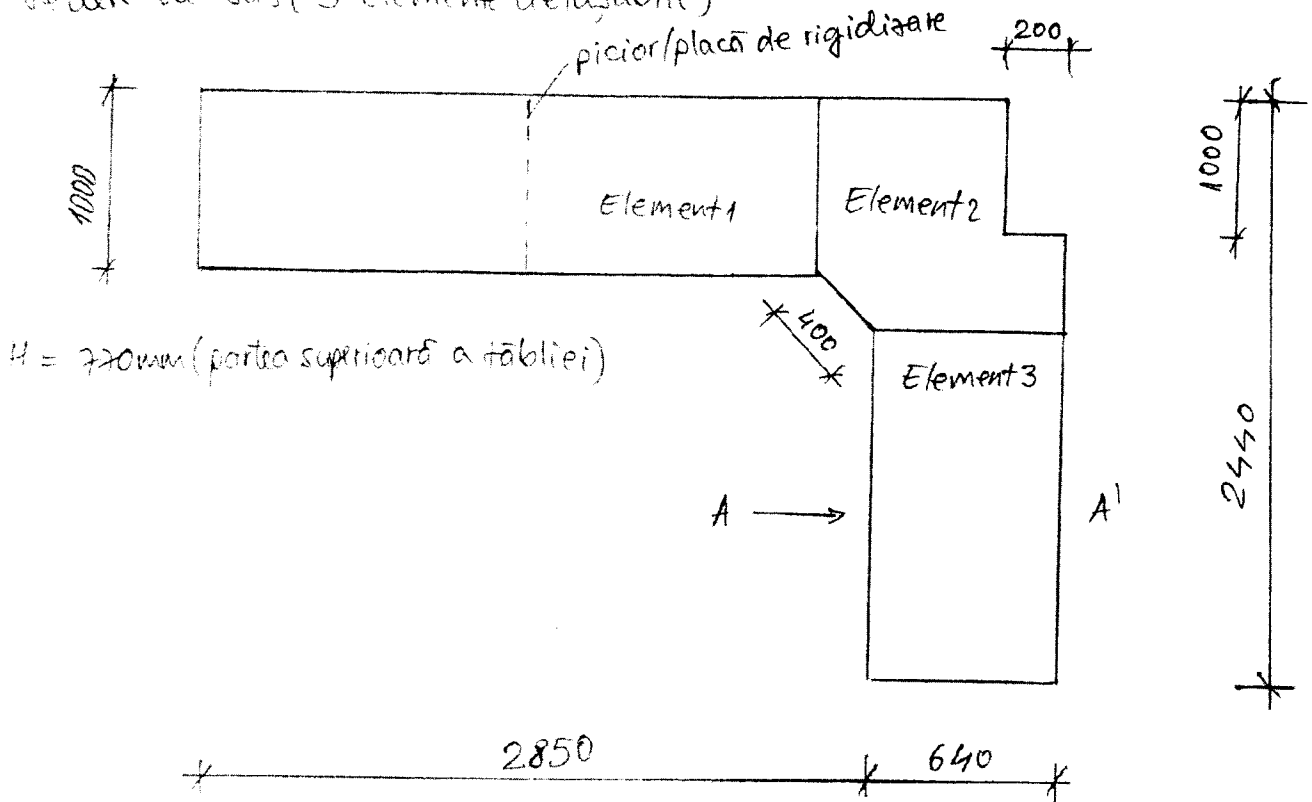 3 elemente detașabile)
picior/placă de rigidizare
200
1000
1000
Element 1
Element 2
400
H = 770mm (partea superioară a tăbliei)
Element 3
2440
A
A'
2850
640